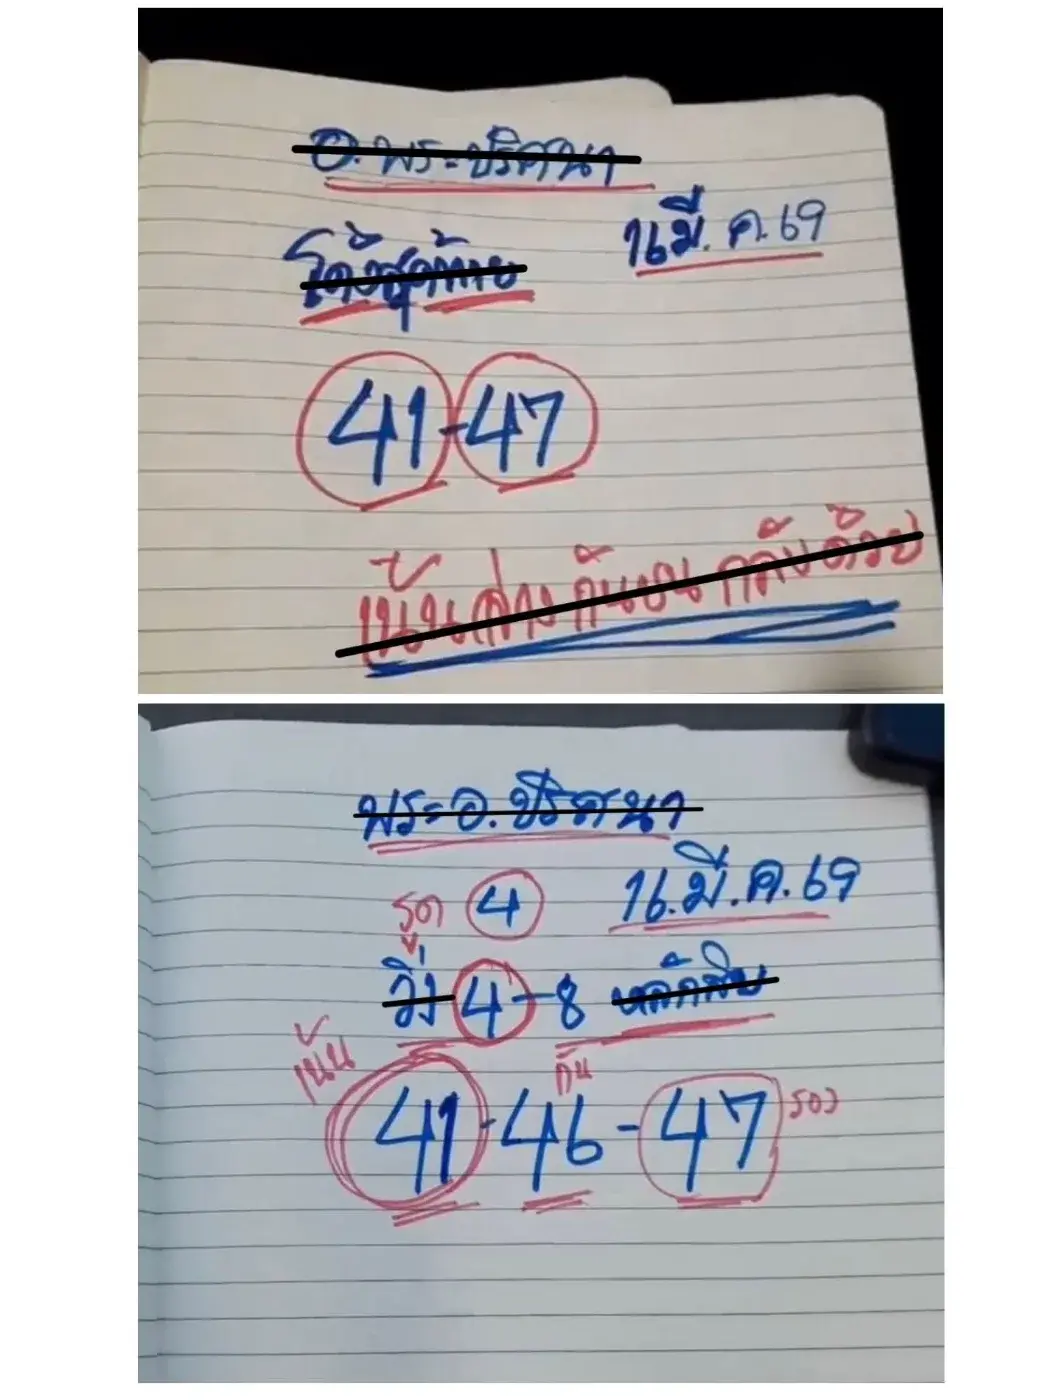 อ.พระปริศนา
โค้งสุดท้าย
16มี.ค.69
41-47
เน้นล่าง กันบน กลับด้วย
พระอ.ปริศนา
รูด 4
16.มี.ค.69
วิ่ง 4-8 หลักสิบ
เน้น
กัน
41-46-47 รอง